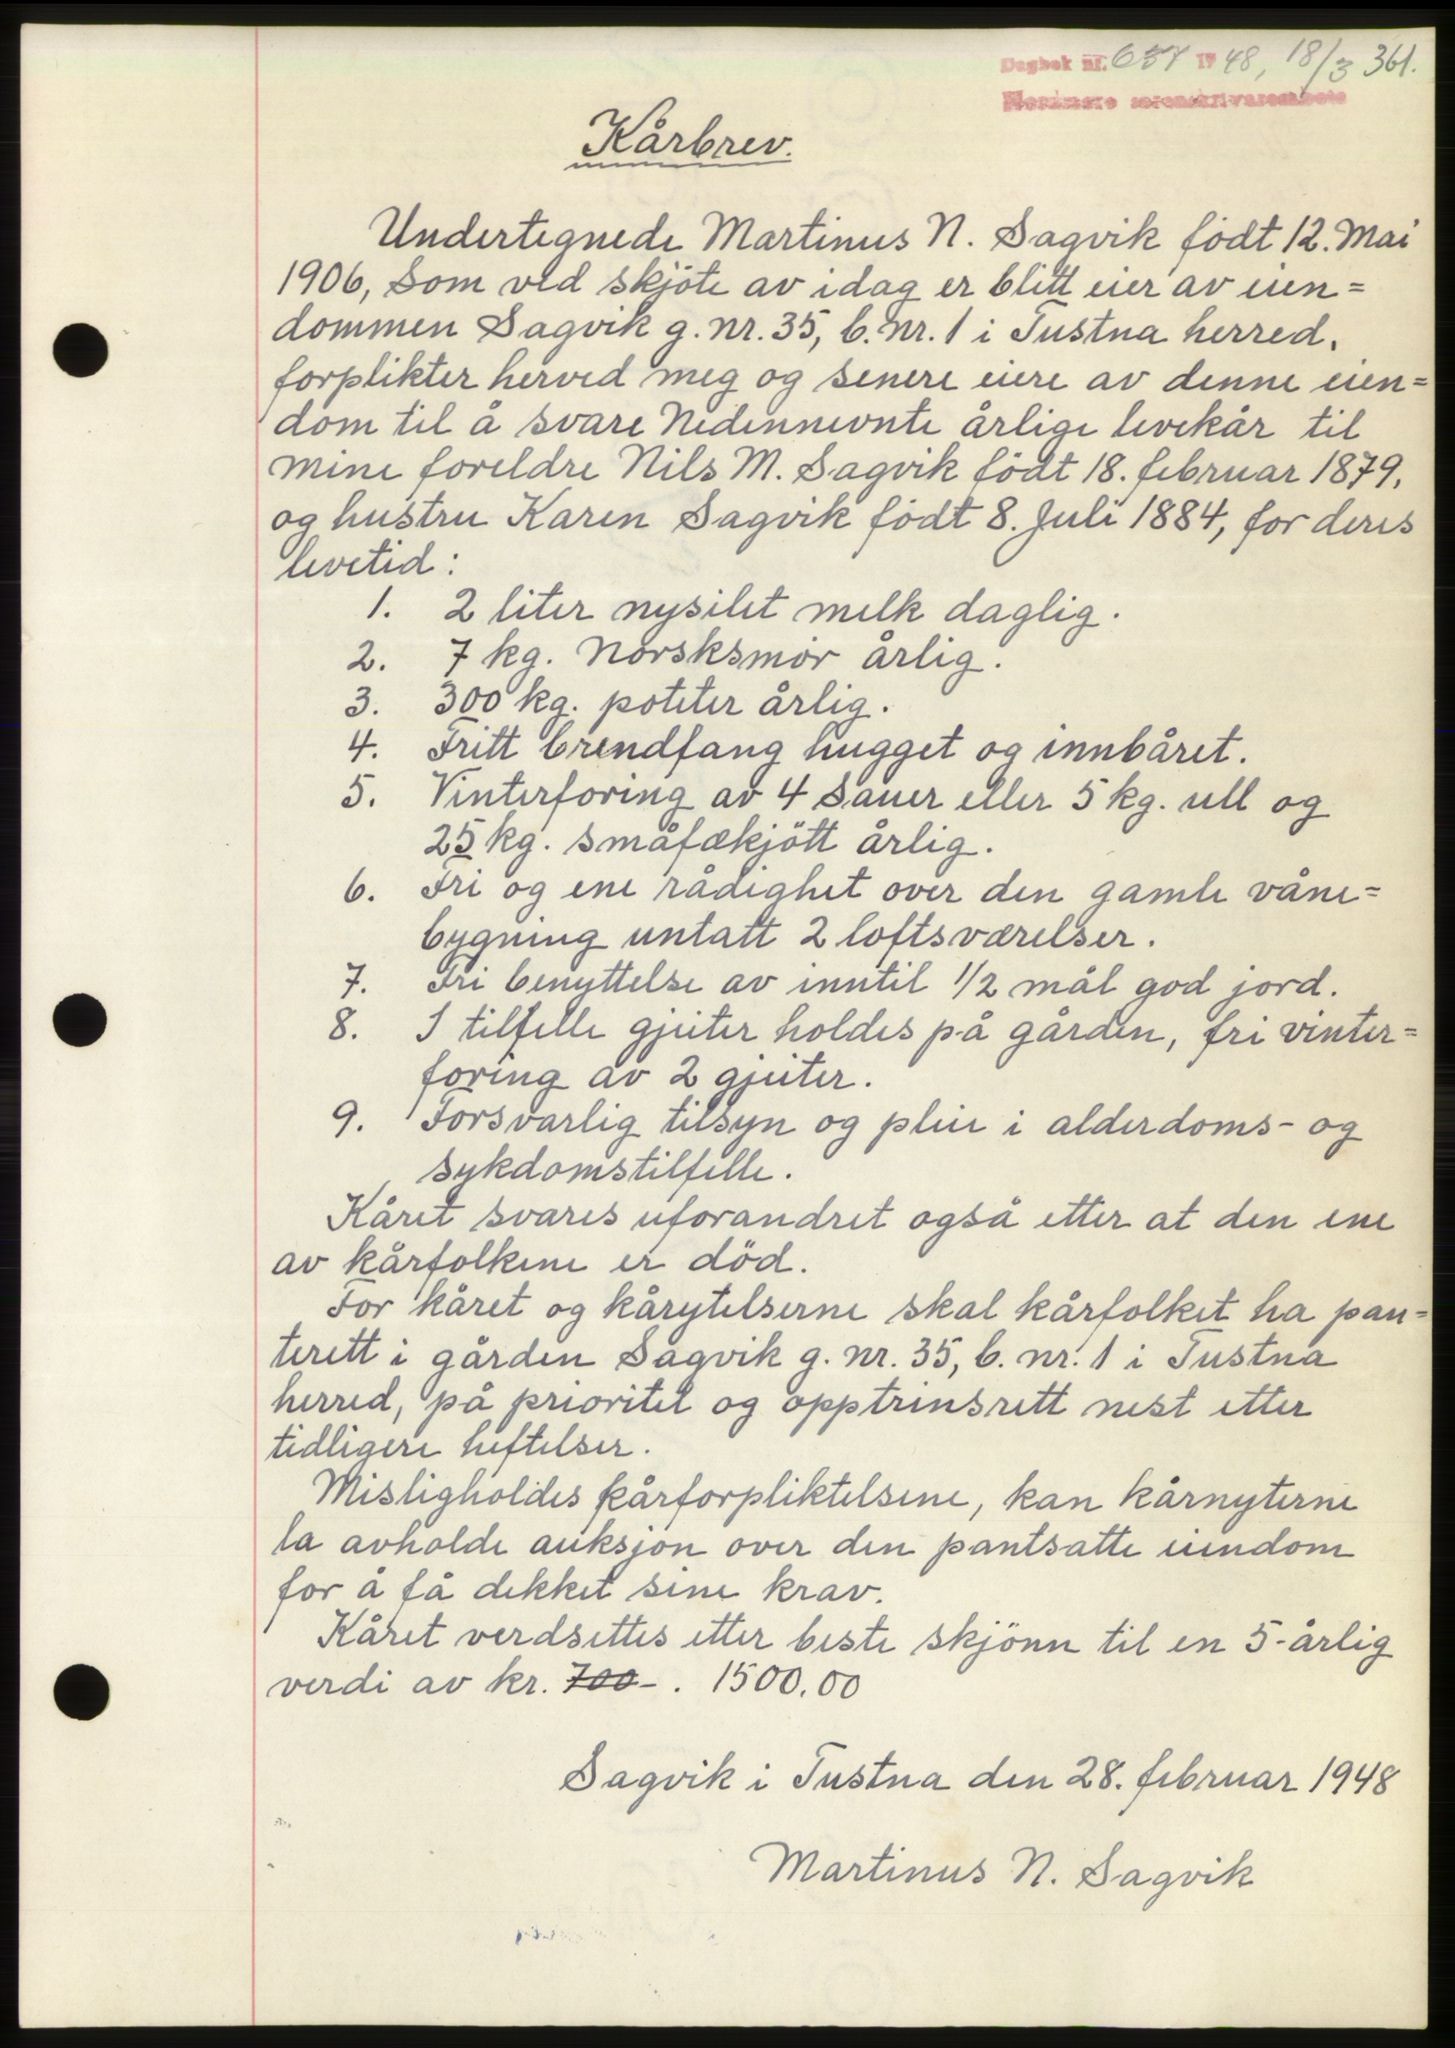 Dagbok nr. 657 1948, 18/3 361.
Nordmøre sorenskrivarembete
Kårbrev.
Undertegnede Martinus N. Sagvik födt 12. Mai
1906, som ved skjöte av idag er blitt eier av eien=
dommen Sagvik g. nr. 35, b. nr. 1 i Tustna herred,
forplikter herved meg og senere eiere av denne eien=
dom til å svare nedennevnte årlige levekår til
mine foreldre Nils M. Sagvik födt 18. februar 1879,
og hustru Karen Sagvik födt 8. Juli 1884, for deres
levetid:
1. 2 liter nysilet melk daglig.
2. 7 kg. Norsksmör årlig.
3. 300 kg. poteter årlig.
4. Fritt brendfang hugget og innbåret.
5. Vinterforing av 4 sauer eller 5 kg. ull og
25 kg. småfækjött årlig.
6. Fri og ene rådighet over den gamle våne=
bygning untatt 2 loftsværelser.
7. Fri benyttelse av inntil 1/2 mål god jord.
8. I tilfelle gjeiter holdes på gården, fri vinter=
foring av 2 gjeiter.
9. Forsvarlig tilsyn og pleie i alderdoms- og
sykdomstilfelle.
Kåret svares uforandret også etter at den ene
av kårfolkene er död.
For kåret og kårytelserne skal kårfolket ha pan=
terett i gården Sagvik g. nr. 35, b. nr. 1 i Tustna
herred, på prioritet og opptrinsrett nest etter
tidligere heftelser.
Misligholdes kårforpliktelsene, kan kårnyterne
la avholde auksjon over den pantsatte eiendom
for å få dekket sine krav.
Kåret verdsettes etter beste skjönn til en 5-årlig
verdi av kr. 700-. 1500.00
Sagvik i Tustna den 28. februar 1948
Martinus N. Sagvik